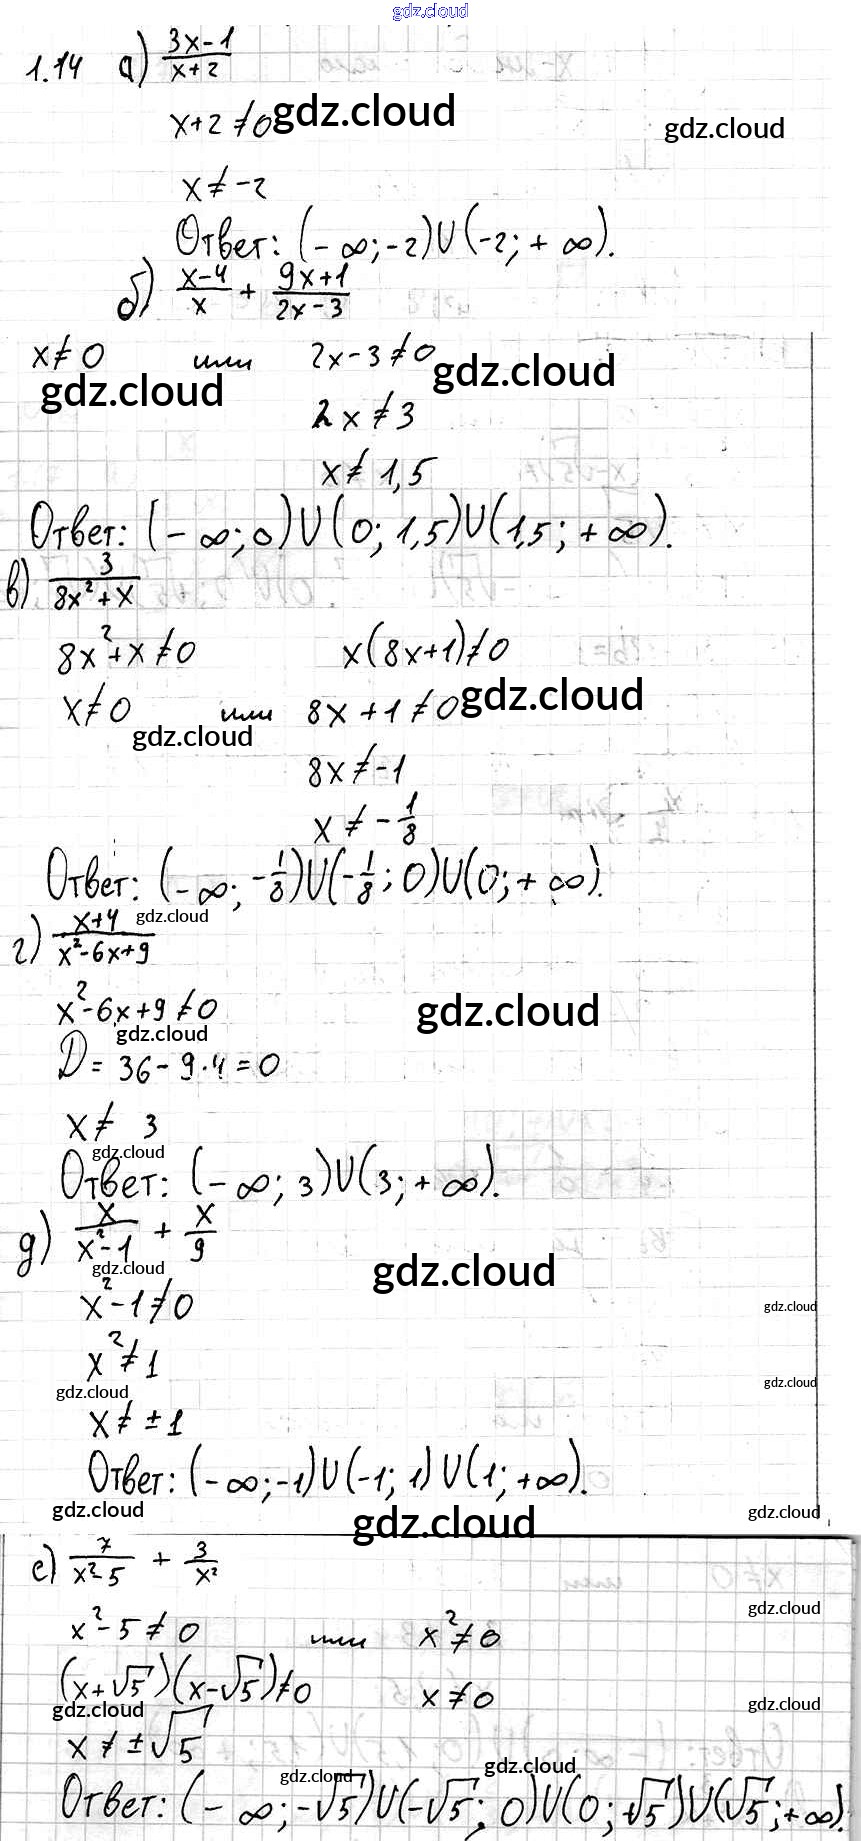 gdz.cloud
1.14 а) (3x-1)/(x+2)
x+2≠0 gdz.cloud
gdz.cloud
x≠-2
Ответ: (-∞;-2)U(-2;+∞).
б) (x-4)/x + (9x+1)/(2x-3)
x≠0 или 2x-3≠0 gdz.cloud
gdz.cloud
2x≠3
x≠1,5
Ответ: (-∞;0)U(0;1,5)U(1,5;+∞).
в) 3/(8x²+x)
8x²+x≠0 x(8x+1)≠0
x≠0 или 8x+1≠0 gdz.cloud
gdz.cloud
8x≠-1
x≠-1/8
Ответ: (-∞;-1/8)U(-1/8;0)U(0;+∞).
г) (x+4)/(x²-6x+9) gdz.cloud
x²-6x+9≠0 gdz.cloud
gdz.cloud
D=36-9·4=0
x≠ 3
gdz.cloud
Ответ: (-∞;3)U(3;+∞).
д) x/(x²-1) + x/9
gdz.cloud gdz.cloud
x²-1≠0 gdz.cloud
x²≠1
gdz.cloud gdz.cloud
x≠±1
Ответ: (-∞;-1)U(-1;1)U(1;+∞).
gdz.cloud gdz.cloud gdz.cloud
е) 7/(x²-5) + 3/x²
gdz.cloud
x²-5≠0 или x²≠0
(x+√5)(x-√5)≠0 x≠0 gdz.cloud
gdz.cloud
x≠±√5
gdz.cloud gdz.cloud
Ответ: (-∞;-√5)U(-√5;0)U(0;√5)U(√5;+∞).